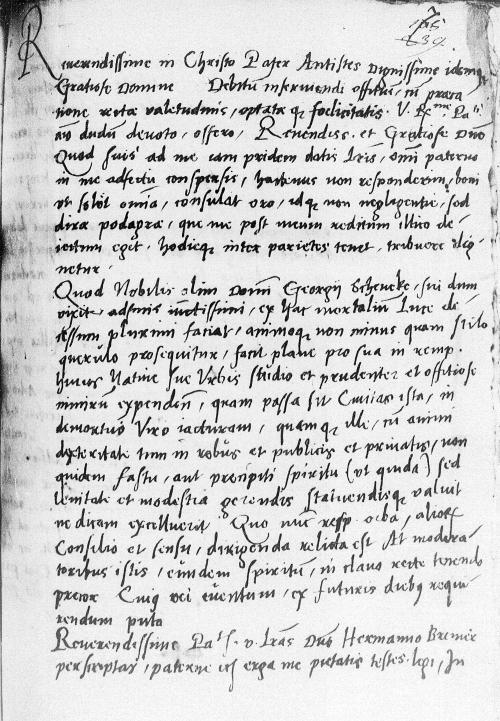 Reverendissime in Christo Pater Antistes Dignissime idemq
Gratiose Domine Debitū inserviendi offitiū, cū praea
tione rectae valetudinis, optatae q foelicitatis V. Re^me P^ti
dudū devoto, offero, Reverendiss. et Gratiose Dn̄e
Quod suis ad me iam pridem datis Lr̄is, om̄i paterno
in me adfectu conspersis, hactenus non responderim, boni
ut solet omnia, consulat oro, idq non negligentie, sed
dirae podagrae, que me post meum reditum illico de
iectum egit, hodieq inter parietes tenet, tribuere dig
netur.
Quod Nobilis olim Domi Georgij Schewcke, sui dum
vixit adfinis iunctissimi, ex hac mortalium Luce de
cessum plurimi faciat, animoq non minus quam stilo
querulo prosequitur, facit plane pro sua in remp.
huius Natiue sue Urbis studio et prudenter et offitiose
nimirū expenden̄, quam passa sit Civitas ista, in
demortuo Viro iacturam, quamq ille, cū animi
dexteritate tum in rebus et publicis et privatis, non
quidem fastu, aut precipiti spiritu (ut quida) sed
lenitate et modestia gerendis statuendisq valuit
ne dicam excelluerit Quo nūc resp orba, alioȝ
Consilio et sensu, dirigenda relicta est At modera
toribus istis, eūdem spiritū, in clavo recte tenendo
precor Cuiq rei eventum, ex futuris diebq requi
rendum puto
Reverendissime Pa^tis. v. Lr̄as Dn̄o Hermanno Bremer
perscriptas, paterne erga me pietatis testes legi, In